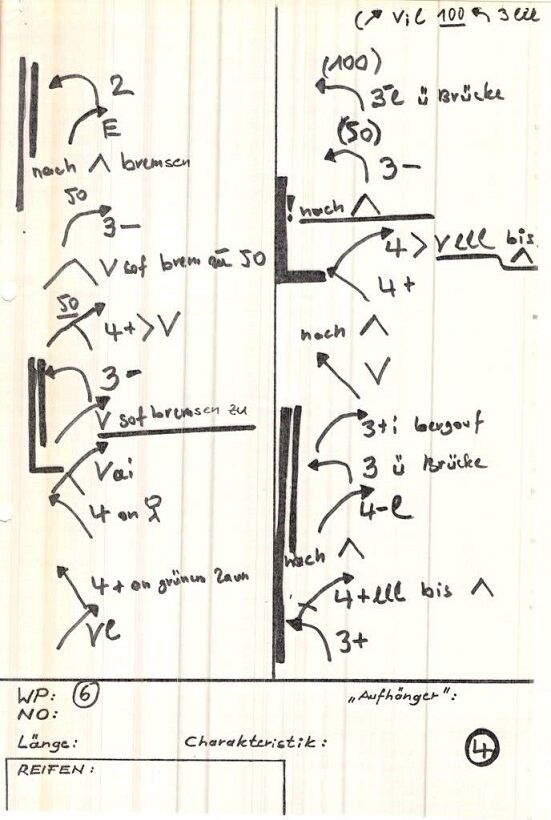 2
E
nach ∧ bremsen
50
3–
∧ V sof brem zu 50
50
4+>V
3–
V sof bremsen zu
Vai
4 an
4+ an grünen Zaun
Vl
(↗ Vil 100 ↖ 3lll
(100)
3–l ü Brücke
(50)
3–
! nach ∧
4>Vlll bis ∧
4+
nach ∧
V
3+i bergauf
3 ü Brücke
4–l
nach ∧
4+lll bis ∧
3+
WP: 6
NO:
„Aufhänger":
Länge:
Charakteristik:
4
REIFEN: